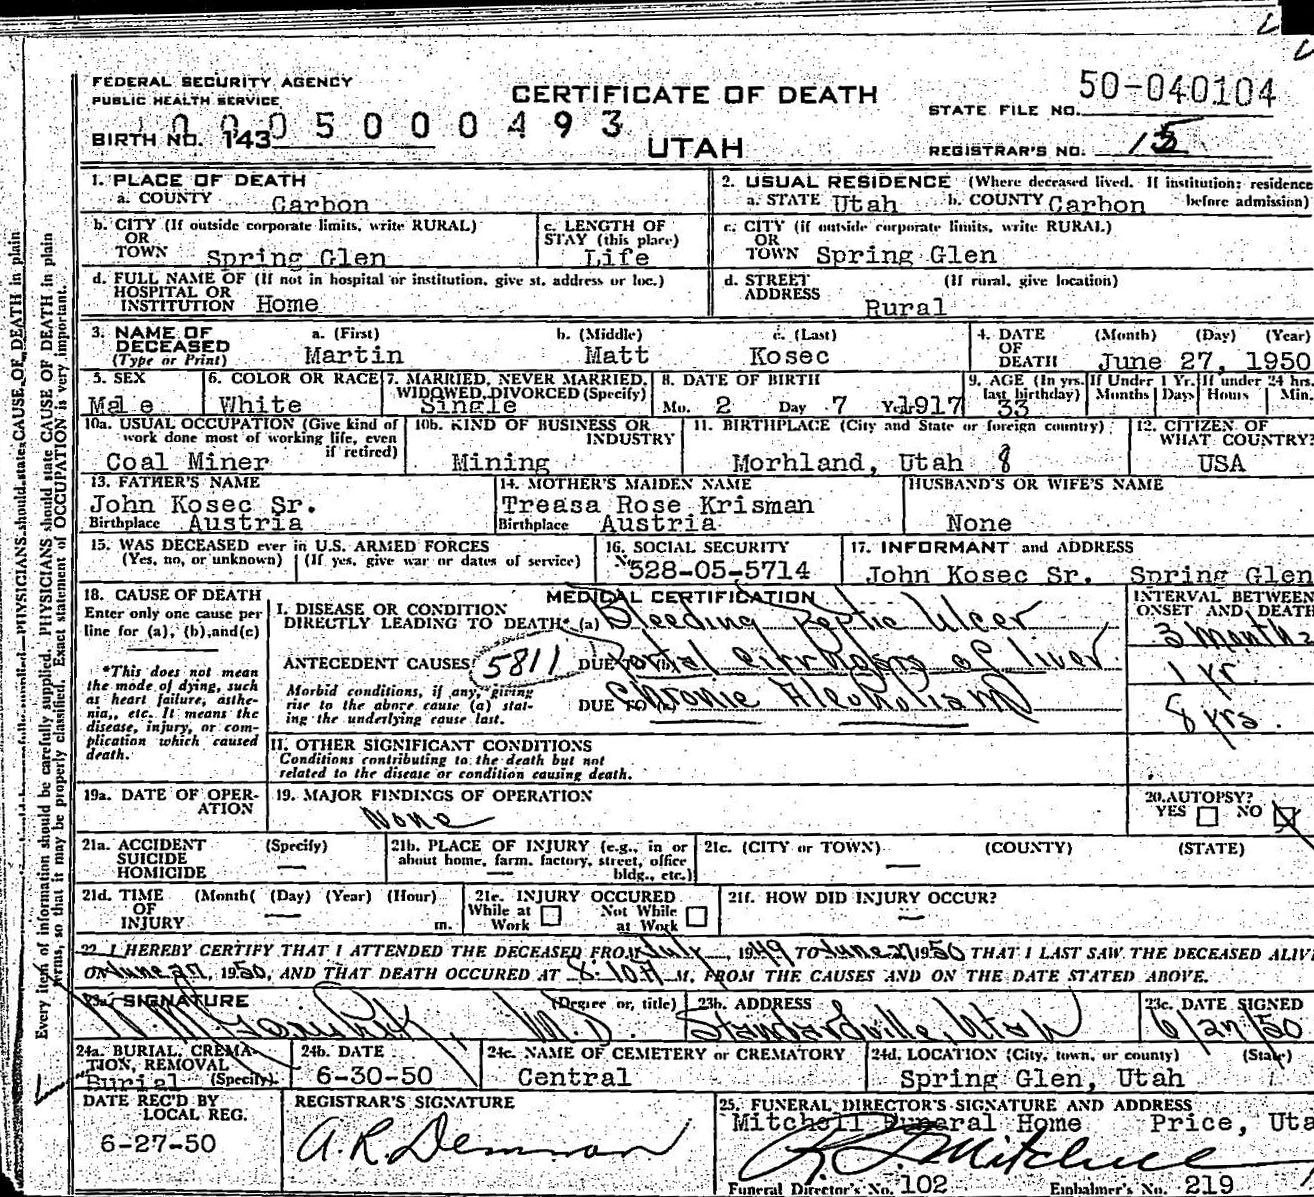 FEDERAL SECURITY AGENCY
PUBLIC HEALTH SERVICE
CERTIFICATE OF DEATH
UTAH
50-040104
STATE FILE NO.
BIRTH NO. 143
10005000493
REGISTRAR'S NO. 15
1. PLACE OF DEATH
a. COUNTY Carbon
2. USUAL RESIDENCE (Where deceased lived. If institution; residence before admission)
a. STATE Utah b. COUNTY Carbon
b. CITY (If outside corporate limits, write RURAL)
OR
TOWN Spring Glen
c. LENGTH OF
STAY (this place)
Life
c. CITY (if outside corporate limits, write RURAL)
OR
TOWN Spring Glen
d. FULL NAME OF (If not in hospital or institution, give st. address or loc.)
HOSPITAL OR
INSTITUTION Home
d. STREET (If rural, give location)
ADDRESS
Rural
3. NAME OF
DECEASED
(Type or Print)
a. (First) b. (Middle) c. (Last)
Martin Matt Kosec
4. DATE (Month) (Day) (Year)
OF
DEATH June 27, 1950
5. SEX
Male
6. COLOR OR RACE
White
7. MARRIED, NEVER MARRIED,
WIDOWED, DIVORCED (Specify)
Single
8. DATE OF BIRTH
Mo. 2 Day 7 Yr. 1917
9. AGE (In yrs. last birthday)
33
If Under 1 Yr.
Months Days
If under 24 hrs.
Hours Min.
10a. USUAL OCCUPATION (Give kind of
work done most of working life, even
if retired)
Coal Miner
10b. KIND OF BUSINESS OR
INDUSTRY
Mining
11. BIRTHPLACE (City and State or foreign country)
Morhland, Utah 8
12. CITIZEN OF
WHAT COUNTRY?
USA
13. FATHER'S NAME
John Kosec Sr.
Birthplace Austria
14. MOTHER'S MAIDEN NAME
Treasa Rose Krisman
Birthplace Austria
HUSBAND'S OR WIFE'S NAME
None
15. WAS DECEASED ever in U.S. ARMED FORCES
(Yes, no, or unknown) (If yes, give war or dates of service)
16. SOCIAL SECURITY
No. 528-05-5714
17. INFORMANT and ADDRESS
John Kosec Sr. Spring Glen
18. CAUSE OF DEATH
Enter only one cause per
line for (a), (b), and (c)
*This does not mean
the mode of dying, such
as heart failure, asthe-
nia, etc. It means the
disease, injury, or com-
plication which caused
death.
MEDICAL CERTIFICATION
I. DISEASE OR CONDITION
DIRECTLY LEADING TO DEATH* (a) Bleeding Peptic Ulcer
ANTECEDENT CAUSES 5811 DUE TO (b) Portal Cirrhosis of liver
Morbid conditions, if any, giving
rise to the above cause (a) stat-
ing the underlying cause last.
DUE TO (c) Chronic Alcoholism
INTERVAL BETWEEN
ONSET AND DEATH
3 Months
1 yr
8 yrs.
II. OTHER SIGNIFICANT CONDITIONS
Conditions contributing to the death but not
related to the disease or condition causing death.
19a. DATE OF OPER-
ATION
19. MAJOR FINDINGS OF OPERATION
None
20. AUTOPSY?
YES NO
21a. ACCIDENT (Specify)
SUICIDE
HOMICIDE
21b. PLACE OF INJURY (e.g., in or
about home, farm, factory, street, office
bldg., etc.)
21c. (CITY or TOWN) (COUNTY) (STATE)
21d. TIME (Month) (Day) (Year) (Hour)
OF
INJURY m.
21e. INJURY OCCURED
While at Work Not While at Work
21f. HOW DID INJURY OCCUR?
22. I HEREBY CERTIFY THAT I ATTENDED THE DECEASED FROM July 1949 TO June 27 1950 THAT I LAST SAW THE DECEASED ALIVE
ON June 27, 1950, AND THAT DEATH OCCURED AT 8:10 A M. FROM THE CAUSES AND ON THE DATE STATED ABOVE.
23a. SIGNATURE (Degree or title)
M.D.
23b. ADDRESS
Standardville, Utah
23c. DATE SIGNED
6/27/50
24a. BURIAL, CREMA-
TION, REMOVAL
Burial (Specify)
24b. DATE
6-30-50
24c. NAME OF CEMETERY or CREMATORY
Central
24d. LOCATION (City, town, or county) (State)
Spring Glen, Utah
DATE REC'D BY
LOCAL REG.
6-27-50
REGISTRAR'S SIGNATURE
A.R. Demman
25. FUNERAL DIRECTOR'S SIGNATURE AND ADDRESS
Mitchell Funeral Home Price, Uta
Mitchell
Funeral Director's No. 102 Embalmer's No. 219
Every item of information should be carefully supplied. PHYSICIANS should state CAUSE OF DEATH in plain
terms, so that it may be properly classified. Exact statement of OCCUPATION is very important.